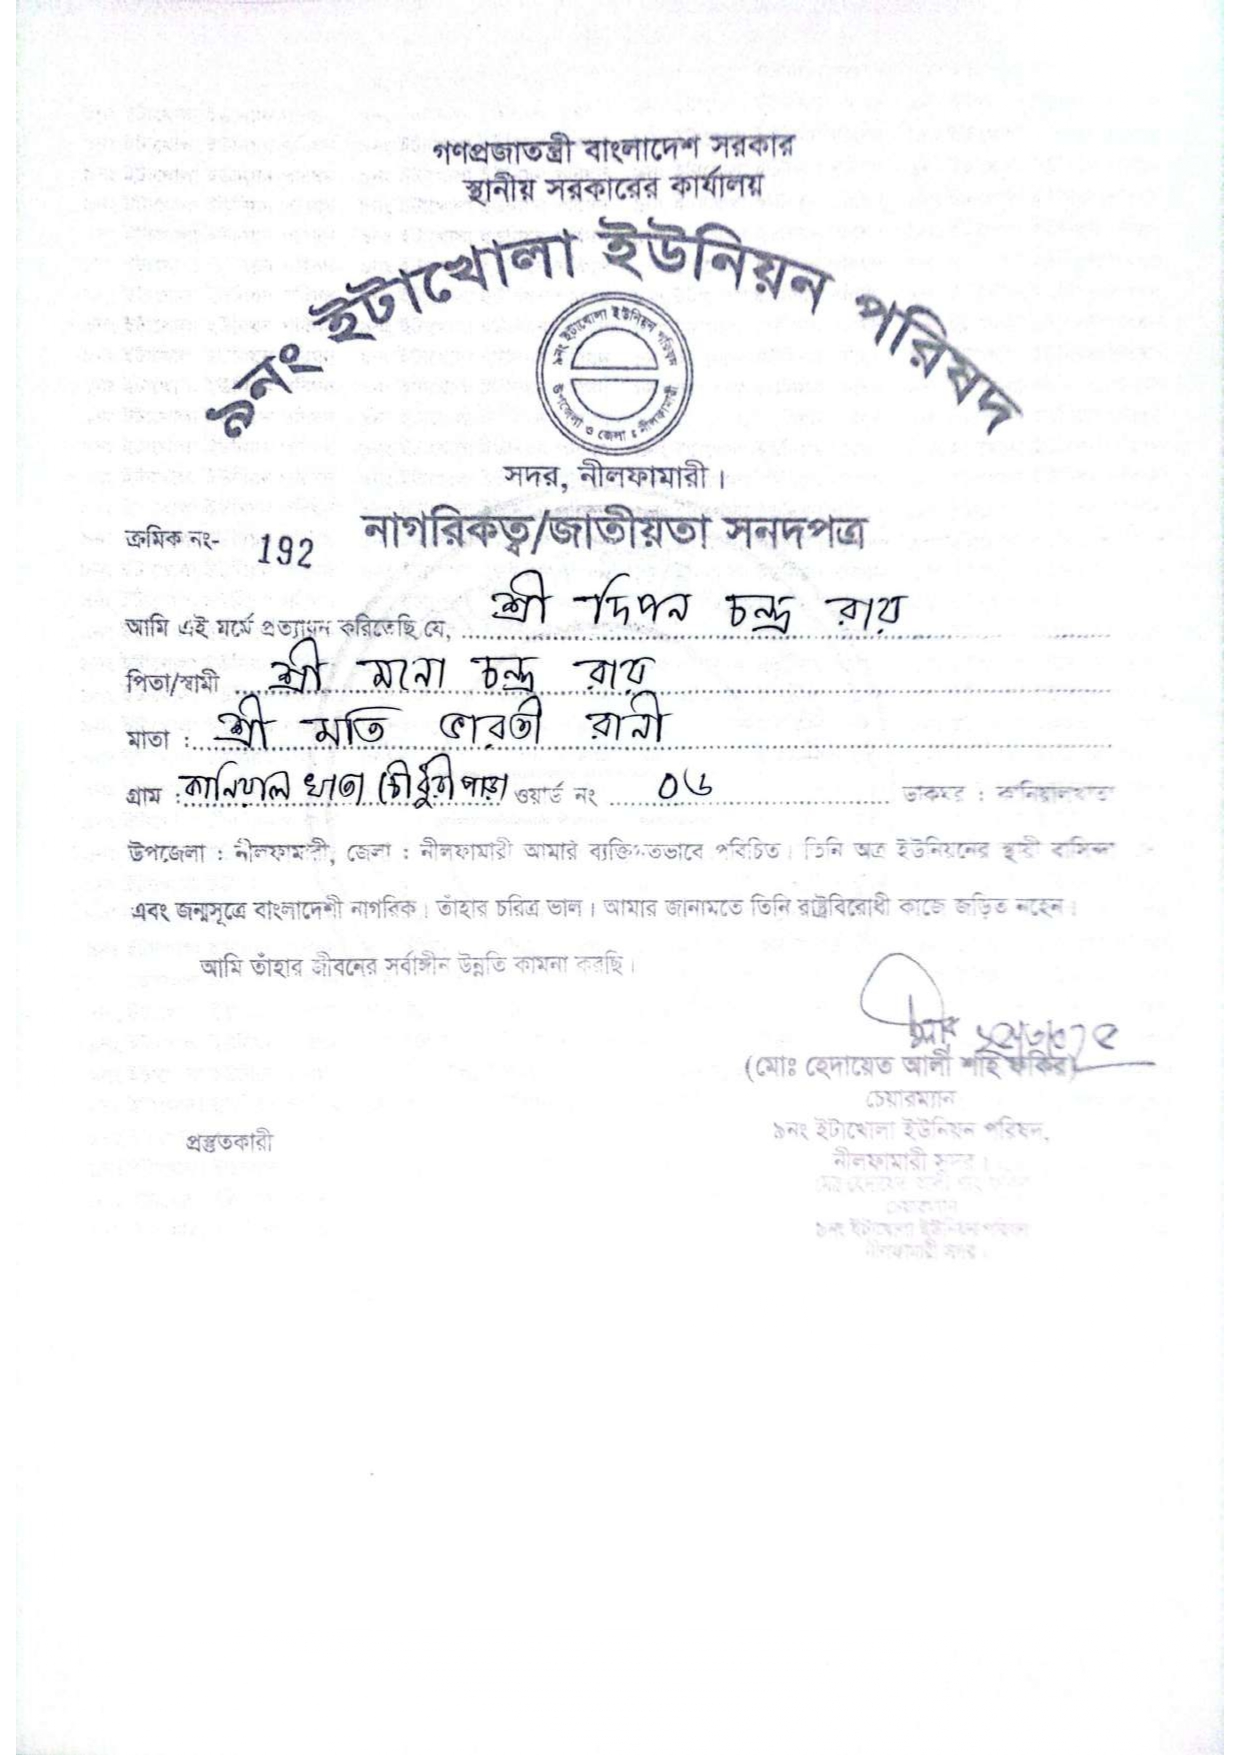 গণপ্রজাতন্ত্রী বাংলাদেশ সরকার
স্থানীয় সরকারের কার্যালয়
৯নং ইটাখোলা ইউনিয়ন পরিষদ
৯নং ইটাখোলা ইউনিয়ন পরিষদ
উপজেলা ও জেলা : নীলফামারী
সদর, নীলফামারী।
নাগরিকত্ব/জাতীয়তা সনদপত্র
ক্রমিক নং- 192
আমি এই মর্মে প্রত্যায়ন করিতেছি যে, শ্রী দিপন চন্দ্র রায়
পিতা/স্বামী শ্রী মনো চন্দ্র রায়
মাতা : শ্রী মতি ভারতী রানী
গ্রাম : কানিয়াল খাতা (চৌধুরী পাড়া) ওয়ার্ড নং ০৬ ডাকঘর : কানিয়ালখাতা
উপজেলা : নীলফামারী, জেলা : নীলফামারী আমার ব্যক্তিগতভাবে পরিচিত। তিনি অত্র ইউনিয়নের স্থায়ী বাসিন্দা
এবং জন্মসূত্রে বাংলাদেশী নাগরিক। তাঁহার চরিত্র ভাল। আমার জানামতে তিনি রাষ্ট্রবিরোধী কাজে জড়িত নহেন।
আমি তাঁহার জীবনের সর্বাঙ্গীন উন্নতি কামনা করছি।
(মোঃ হেদায়েত আলী শাহ ফকির)
চেয়ারম্যান
৯নং ইটাখোলা ইউনিয়ন পরিষদ,
প্রস্তুতকারী
নীলফামারী সদর।
মোঃ হেদায়েত আলী শাহ ফকির
চেয়ারম্যান
৯নং ইটাখোলা ইউনিয়ন পরিষদ
নীলফামারী সদর।